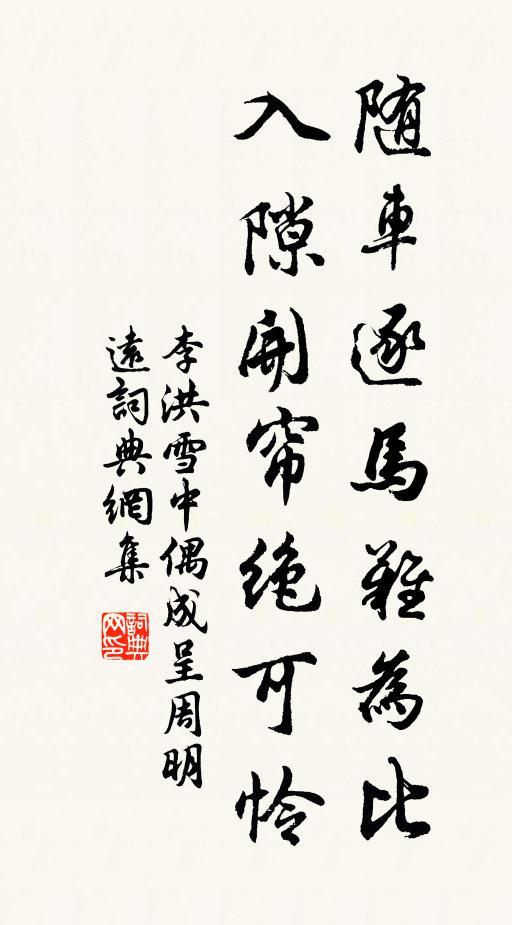 随車逐馬難為比
入隙開帘絶可怜
李洪雪中偶成呈周明
遠詞典網集
詞典网印